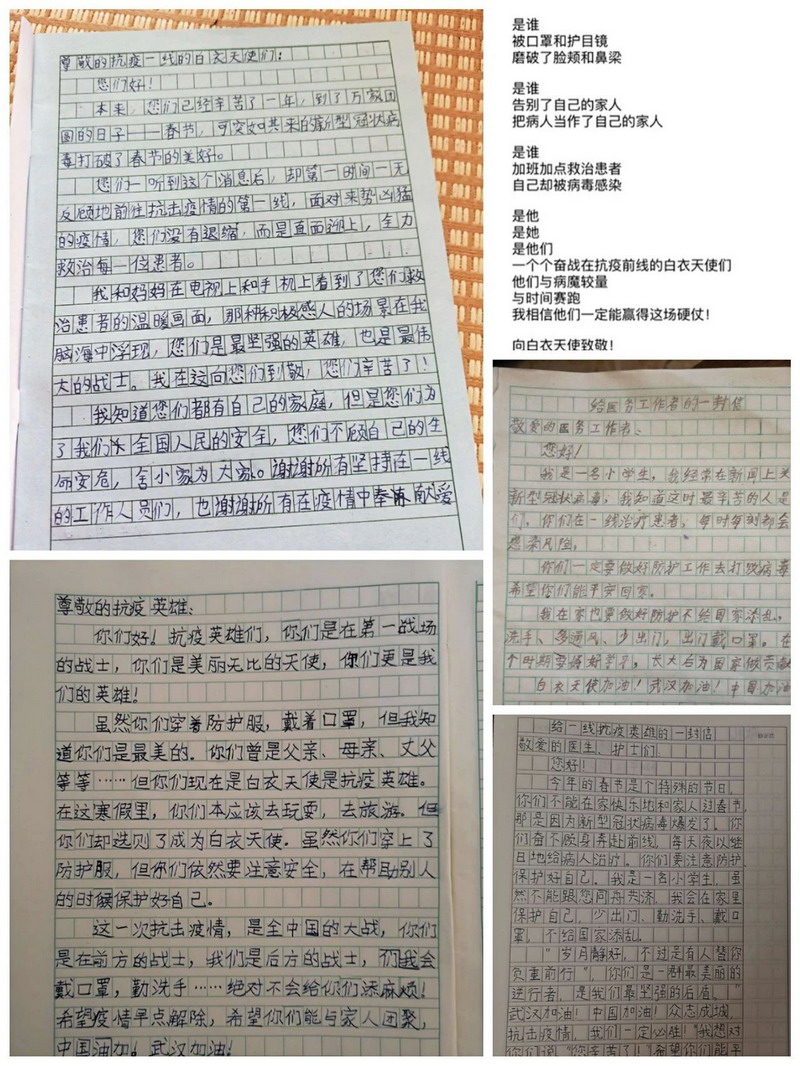 尊敬的抗疫一线的白衣天使们：
您们好！
本来，您们已经辛苦了一年，到了万家团
圆的日子——春节，可突如其来的新型冠状病
毒打破了春节的美好。
您们一听到这个消息后，却第一时间一无
反顾地前往抗击疫情的第一线，面对来势凶猛
的疫情，您们没有退缩，而是直面迎上，全力
救治每一位患者。
我和妈妈在电视上和手机上看到了您们救
治患者的温暖画面，那种积极感人的场景在我
脑海中浮现，您们是最坚强的英雄，也是最伟
大的战士。我在这向您们到敬，您们辛苦了！
我知道您们都有自己的家庭，但是您们为
了我们全国人民的安全，您们不顾自己的生
命安危，舍小家为大家。谢谢所有坚持在一线
的工作人员们，也谢谢所有在疫情中奉献爱
是谁
被口罩和护目镜
磨破了脸颊和鼻梁
是谁
告别了自己的家人
把病人当作了自己的家人
是谁
加班加点救治患者
自己却被病毒感染
是他
是她
是他们
一个个奋战在抗疫前线的白衣天使们
他们与病魔较量
与时间赛跑
我相信他们一定能赢得这场硬仗！
向白衣天使致敬！
给医务工作者的一封信
敬爱的医务工作者：
您好！
我是一名小学生，我经常在新闻上关
新型冠状病毒，我知道这时最辛苦的人是
们，你们在一线治疗患者，每时每刻都会
感染风险。
你们一定要做好防护工作去打败病毒
希望你们能平安回家。
我在家也要做好防护不给国家添乱，
洗手、多通风、少出门，出门戴口罩。在
个时期要好学习，长大后为国家做贡献
白衣天使加油！武汉加油！中国加油
尊敬的抗疫英雄、
你们好！抗疫英雄们，你们是在第一战场
的战士，你们是美丽无比的天使，你们更是我
们的英雄！
虽然你们穿着防护服，戴着口罩，但我知
道你们是最美的。你们曾是父亲、母亲、丈父
等等……但你们现在是白衣天使是抗疫英雄。
在这寒假里，你们本应该去玩耍，去旅游。但
你们却选则了成为白衣天使。虽然你们穿上了
防护服，但你们依然要注意安全，在帮助别人
的时候保护好自己。
这一次抗击疫情，是全中国的大战，你们
是在前方的战士，我们是后方的战士，们我会
戴口罩，勤洗手……绝对不会给你们添麻烦！
希望疫情早点解除，希望你们能与家人团聚，
中国加油！武汉加油！
给一线抗疫英雄的一封信
敬爱的医生、护士们：
您好！
今年的春节是个特殊的节日，
你们不能在家快乐地和家人过春节，
那是因为新型冠状病毒爆发了。你
们奋不顾身奔赴前线，每天夜以继
日地给病人治疗。你们要注意防护，
保护好自己。我是一名小学生，虽
然不能跟您同舟共济，我会在家里
保护自己，少出门、勤洗手、戴口
罩，不给国家添乱。
“岁月静好，不过是有人替你
负重前行”，你们是一群最美丽的
逆行者，是我们最坚强的后盾。
武汉加油！中国加油！众志成城，
抗击疫情，我们一定必胜！我想对
你们说“您辛苦了！”希望你们能平